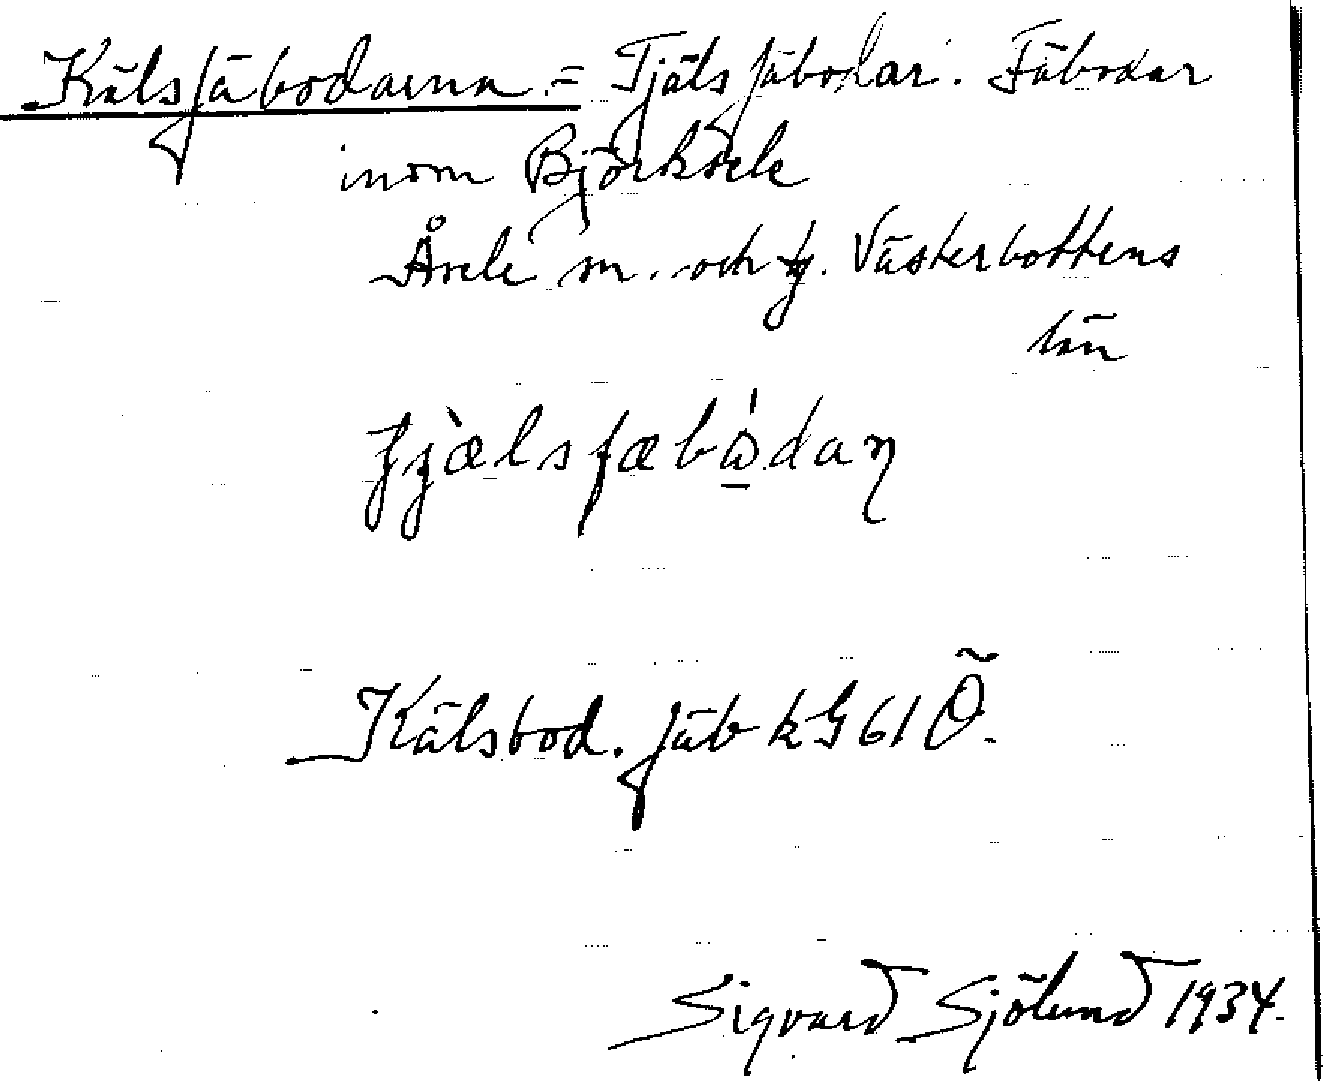 Kälsfäbodarna = Tjäls fäbodar. Fäbodar
inom Björksele
Åsele m. och tg. Västerbottens
län
fjælsfæbodaŋ
Kälsbod. fäb k G 61 Ö.
Sigvard Sjölund 1934.